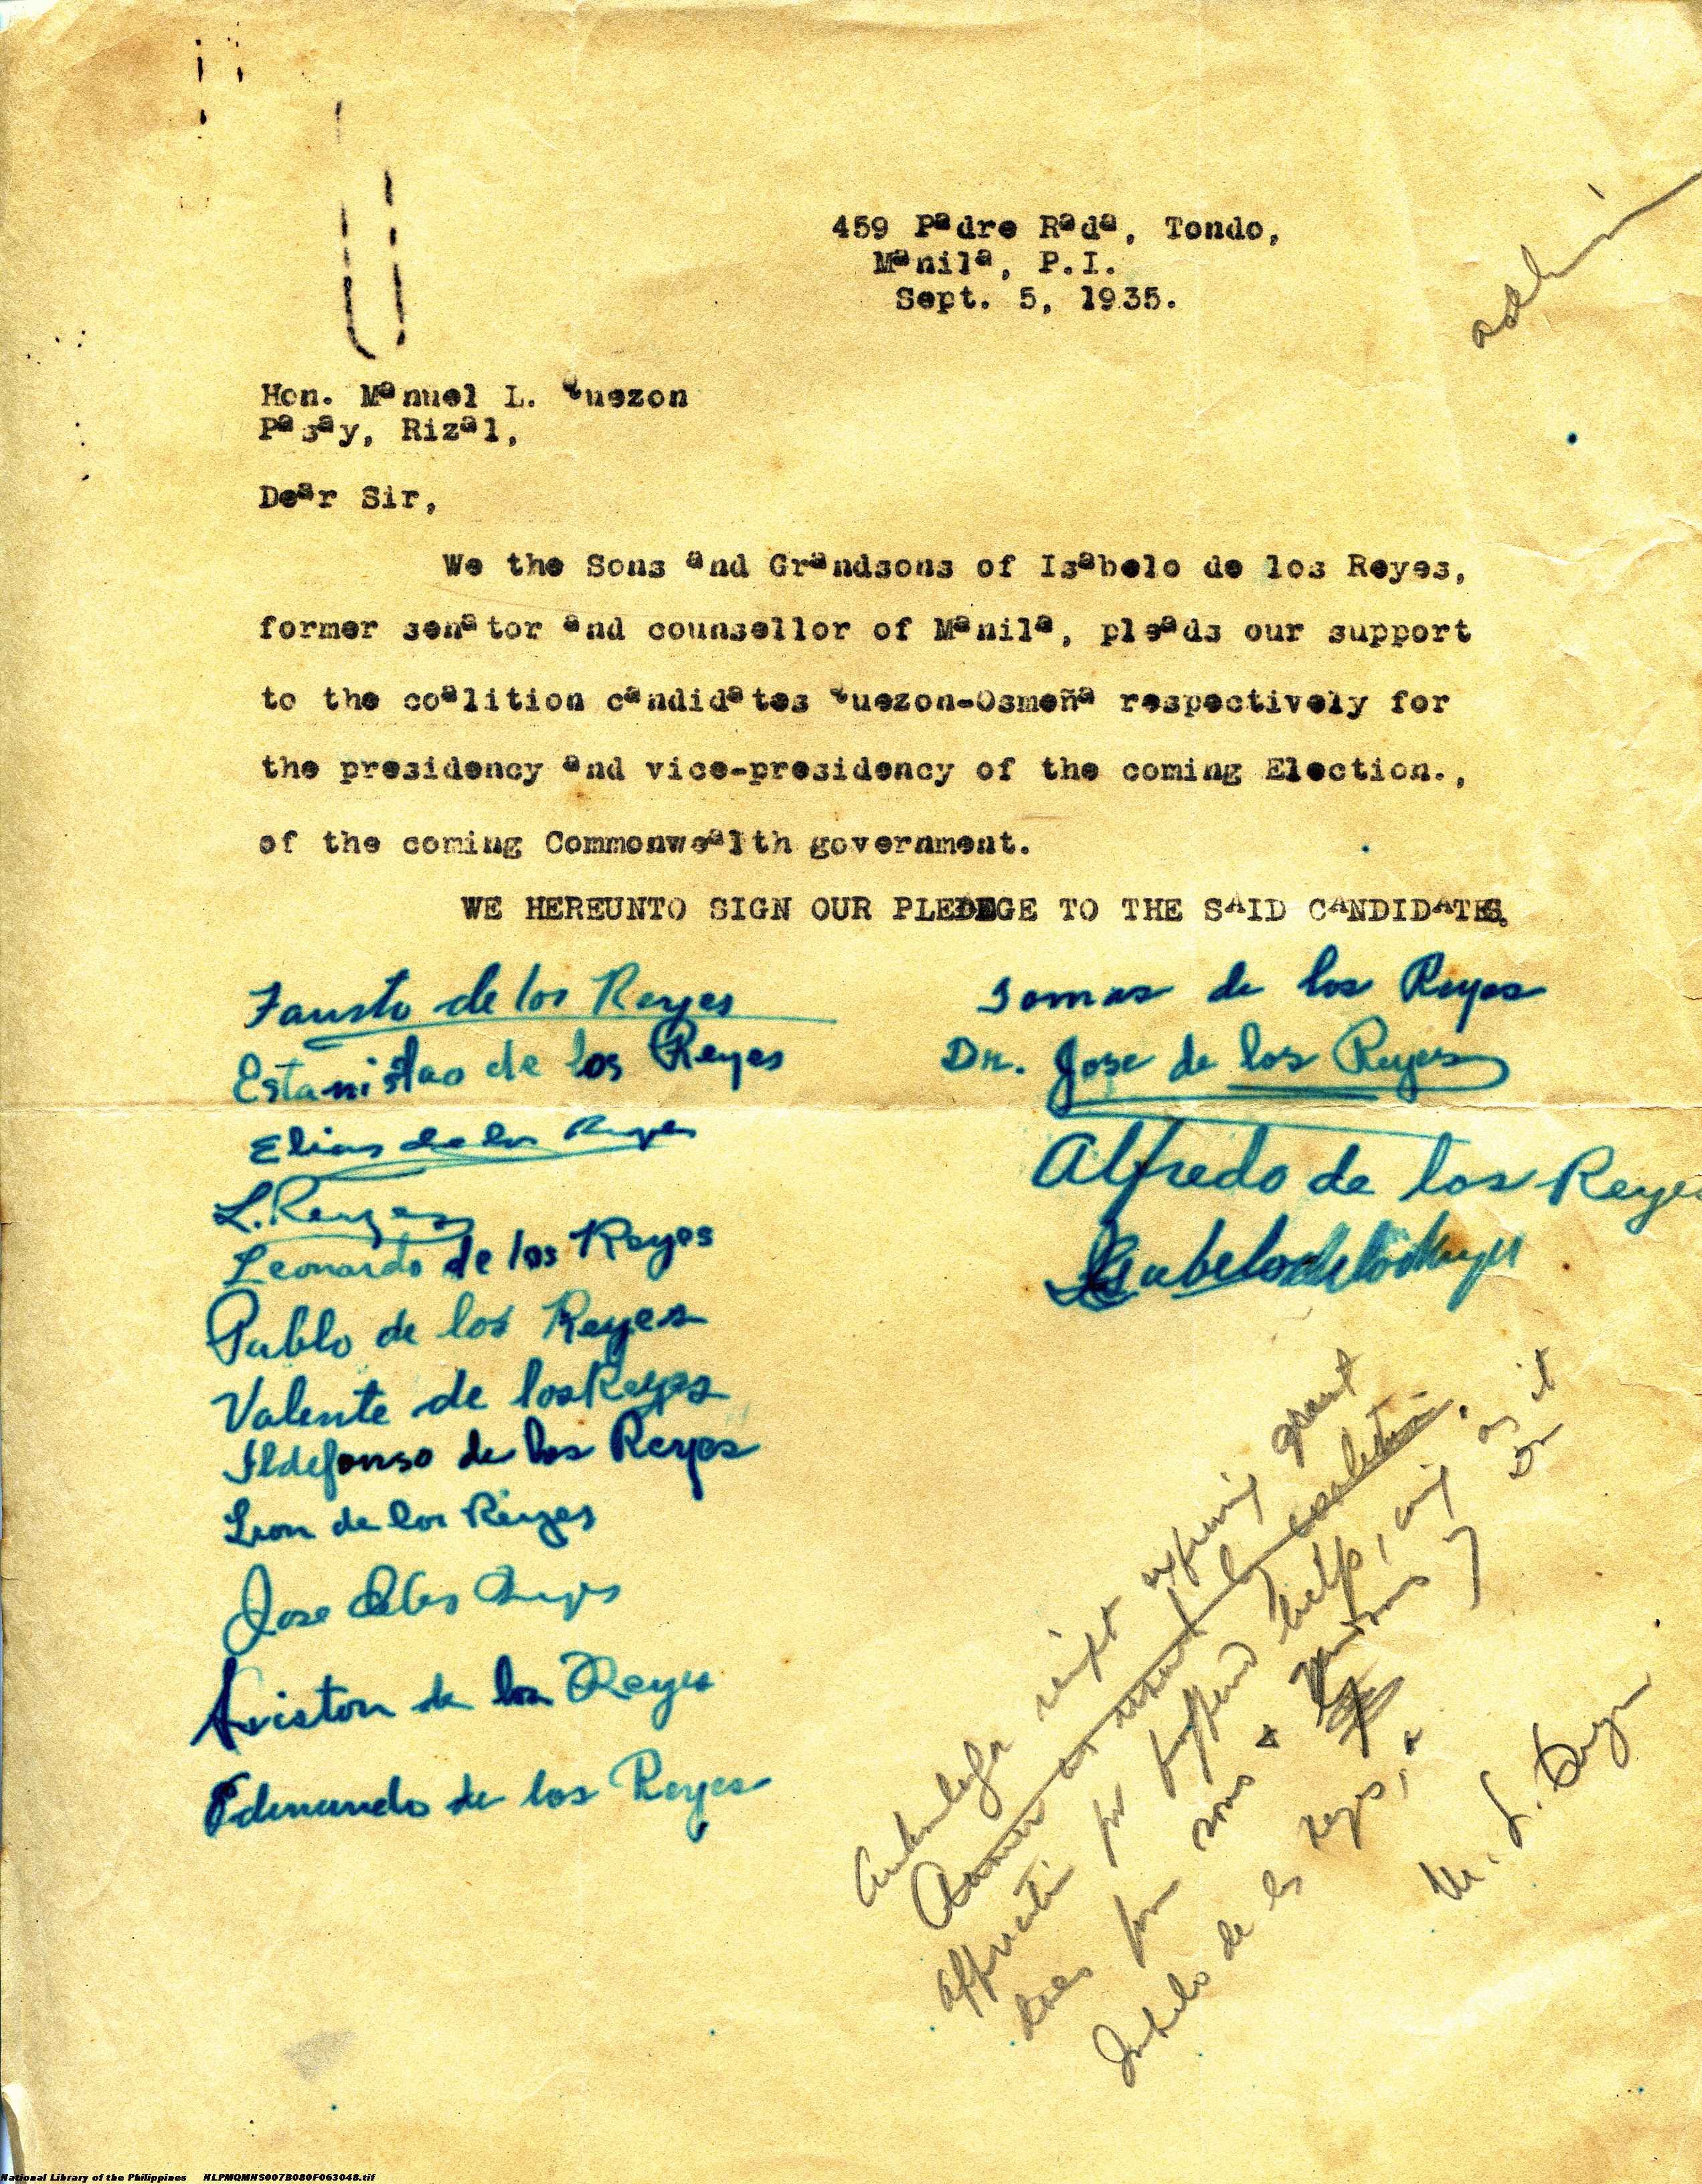 459 Padre Rada, Tondo,
Manila, P.I.
Sept. 5, 1935.
Hon. Manuel L. Quezon
Pasay, Rizal,
Dear Sir,
We the Sons and Grandsons of Isabelo de los Reyes,
former senator and counsellor of Manila, pleads our support
to the coalition candidates Quezon-Osmeña respectively for
the presidency and vice-presidency of the coming Election.,
of the coming Commonwealth government.
WE HEREUNTO SIGN OUR PLEDEGE TO THE SAID CANDIDATES.
Fausto de los Reyes
Estanislao de los Reyes
Elias de los Reyes
L. Reyes
Leonardo de los Reyes
Pablo de los Reyes
Valente de los Reyes
Ildefonso de los Reyes
Leon de los Reyes
Jose de los Reyes
Ariston de los Reyes
Edmundo de los Reyes
Tomas de los Reyes
Dr. Jose de los Reyes
Alfredo de los Reyes
Isabelo de los Reyes
Acknowledge receipt expressing great
appreciation for support help, coming as it
does from sons &
Isabelo de los Reyes,
M. L. Quezon
National Library of the Philippines NLPMQMNS007B080F063048.tif